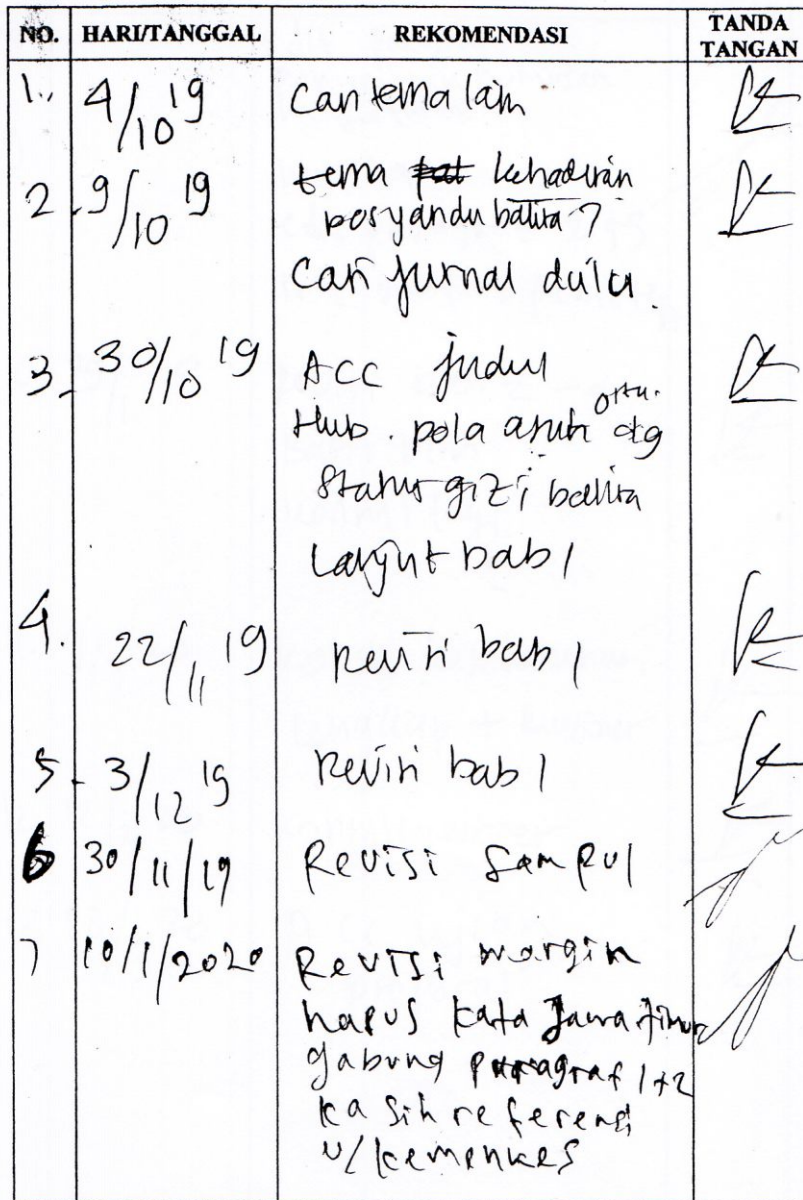 NO. HARI/TANGGAL REKOMENDASI TANDA TANGAN
1. 4/10 19 Cari tema lain
2. 9/10 19 tema kehadiran
posyandu balita ?
Cari jurnal dulu.
3. 30/10 19 ACC judul
Hub. pola asuh ortu. dg
Status gizi balita
Lanjut bab 1
4. 22/11 19 Revisi bab 1
5. 3/12 19 Revisi bab 1
6 30/11/19 Revisi Sampul
7 10/1/2020 Revisi margin
hapus kata Jawa Timur
gabung paragraf 1+2
kasih referensi
u/ kemenkes